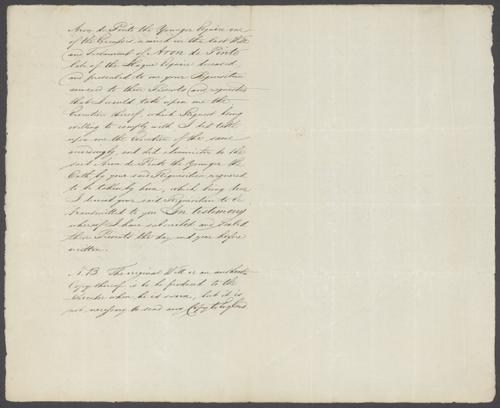 Aron de Pinto the Younger Esquire one
of the Executors named in the last Will
and Testament of Aron de Pinto
late of the Hague Esquire deceased,
and presented to me your Requisition
annexed to these Presents and requested
that I would take upon me the
Execution thereof, which Request being
willing to comply with I did take
upon me the execution of the same
accordingly, and did administer to the
said Aron de Pinto the Younger the
Oath by your said Requisition required
to be taken by him, which being done
I caused your said Requisition to be
transmitted to you In testimony
whereof I have subscribed and sealed
these Presents the day and year before
written.
N.B. The original Will or an authentic
Copy thereof is to be produced to the
Executor when he is sworn, but it is
not necessary to send any Copy to England